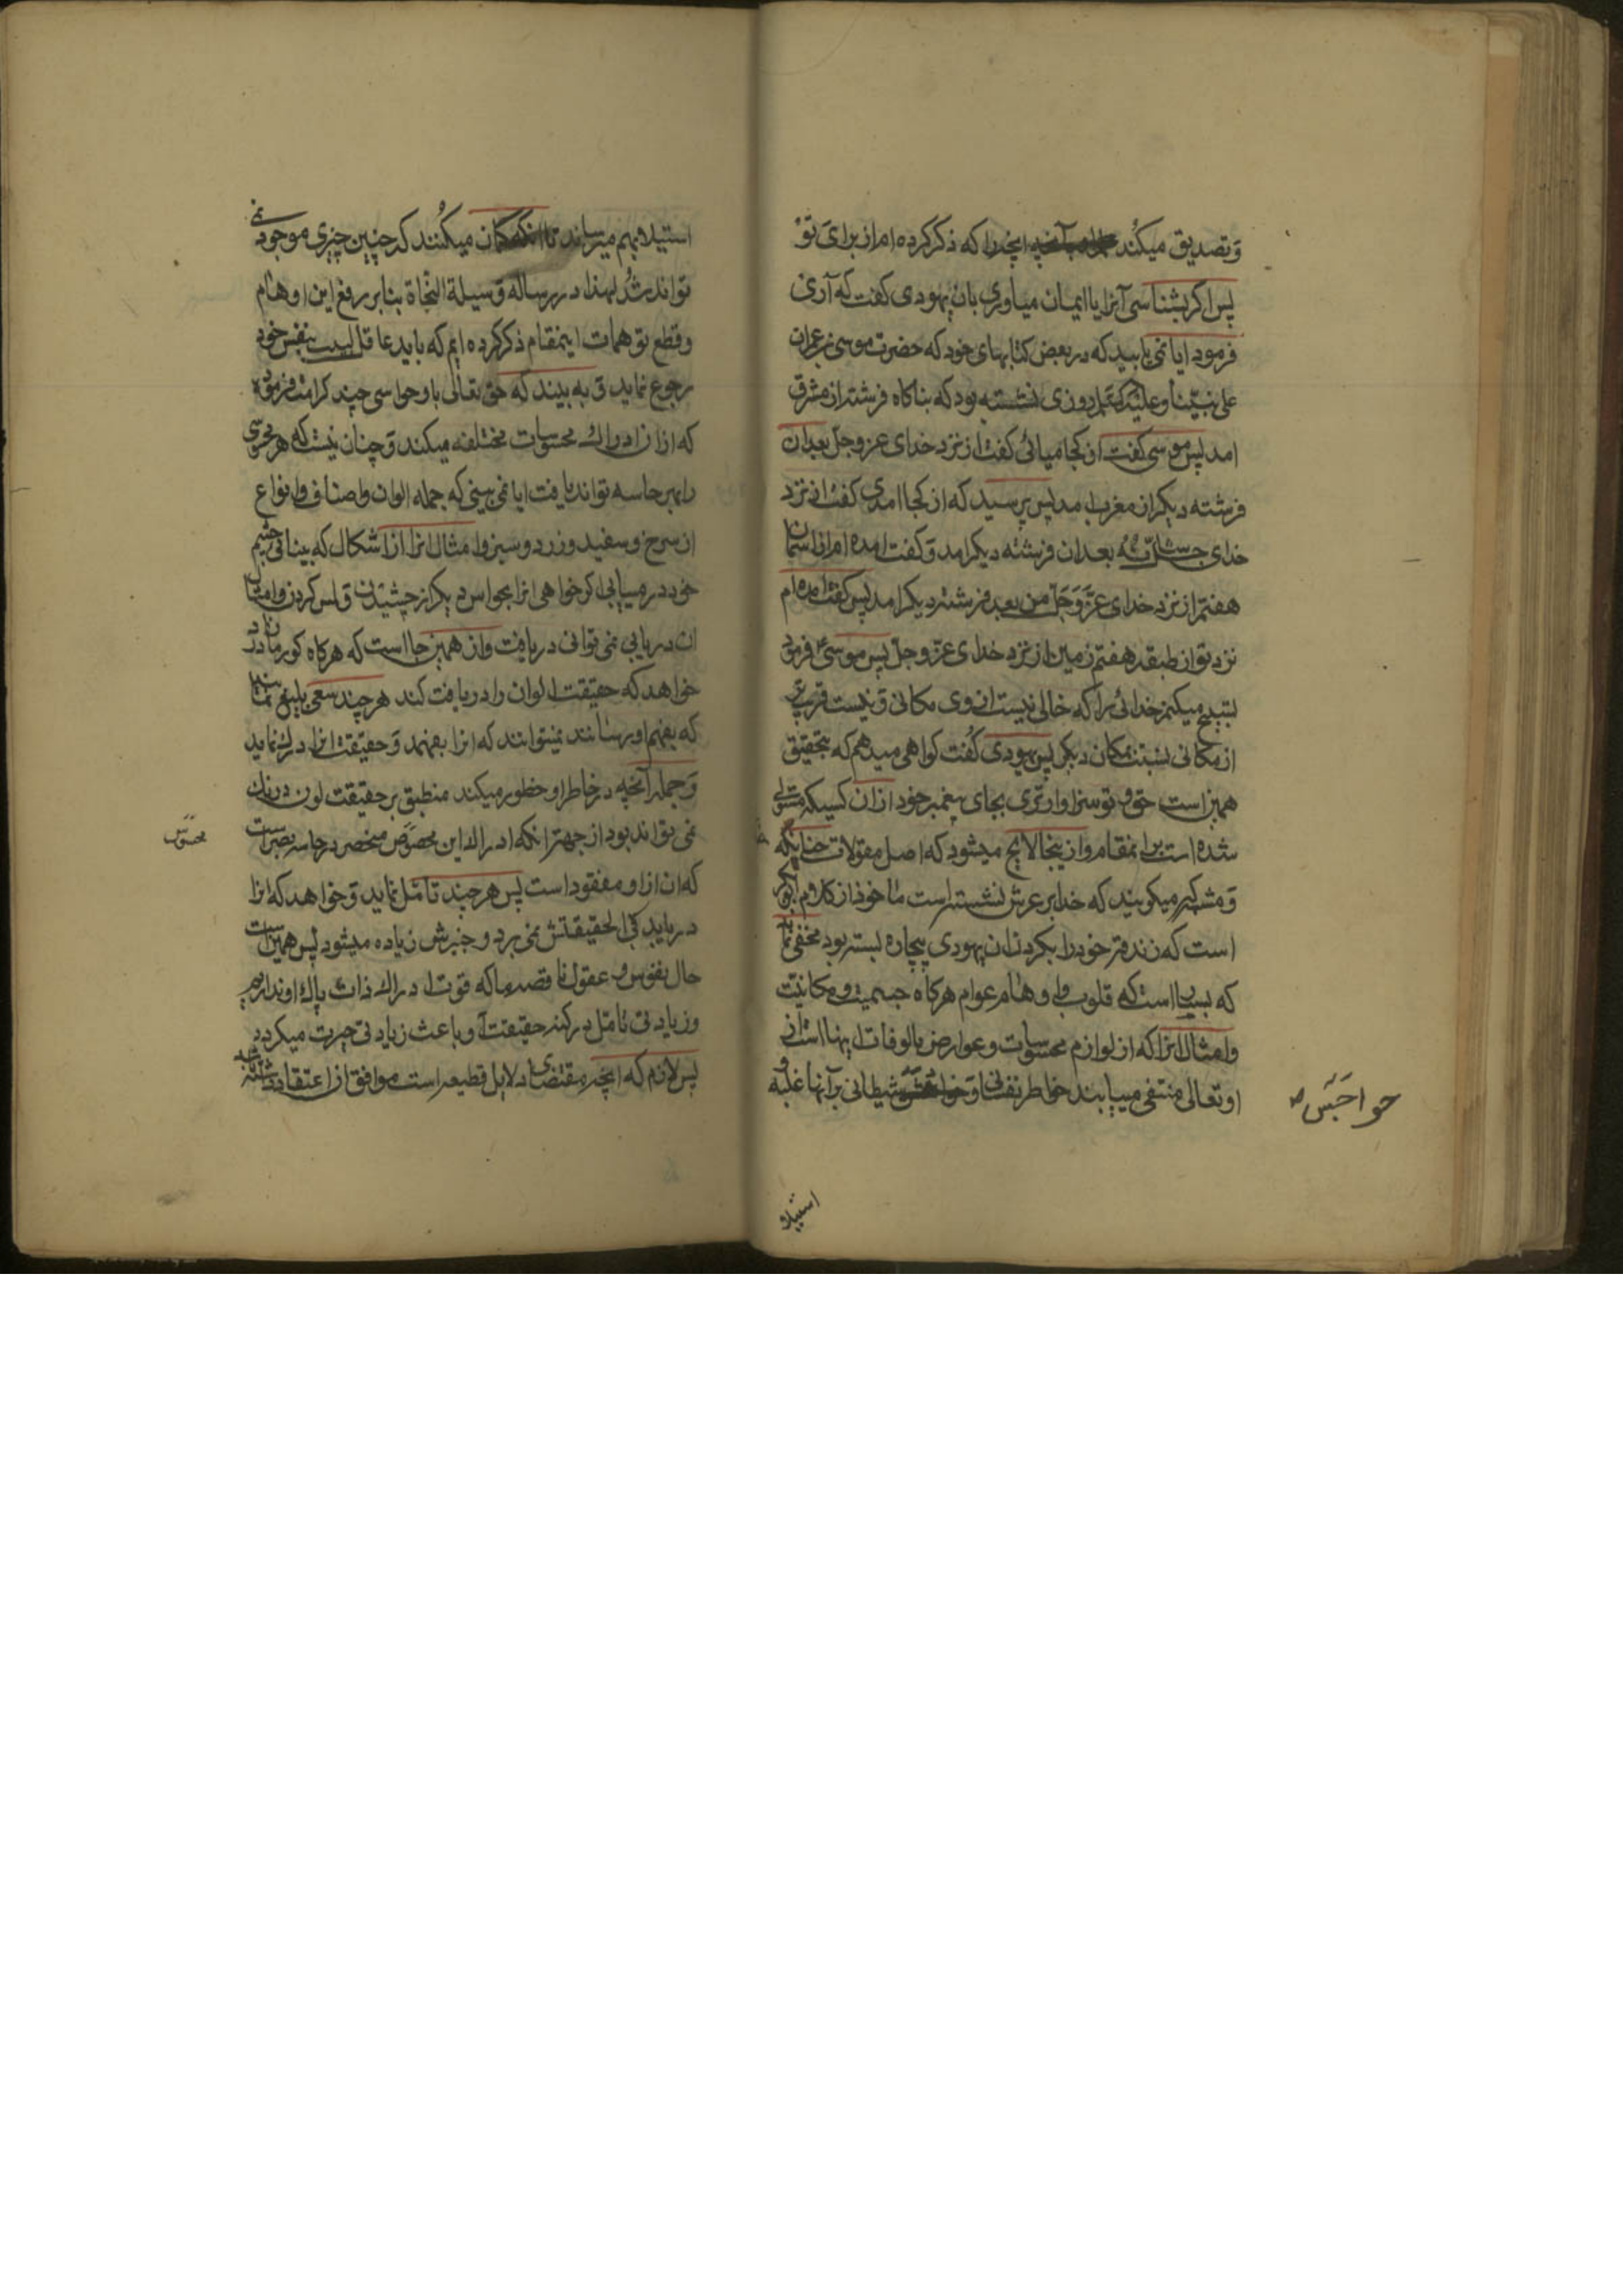 و تصدیق میکند انچه را که ذکر کرده ام از برای تو
پس اگر بشناسی آنرا یا ایمان میاوری بان یهودی کفت که آری
فرمود ایا نمی یابید که در بعض کتابهای خود که حضرت موسی بن عمران
علی نبینا و علیه روزی نشسته بود که بناکاه فرشته از مشرق
امد پس موسی کفت از کجا میائی کفت از نزد خدای عز و جل بعد ان
فرشته دیکر از مغرب امد پس پرسید که از کجا امدی کفت از نزد
خدای بعد ان فرشته دیکر امد و کفت امده ام از اسمان
هفتم از نزد خدای عَزَّ وَ جَلَّ من بعد فرشته دیکر امد پس کفت امده ام
نزد تو از طبقه هفتم زمین از نزد خدای عز و جل پس موسی ع فرمود
تسبیح میکنم خدائی را که خالی نیست از وی مکانی و نیست قریب تر
از مکانی نسبت بمکان دیکر پس یهودی کُفت کواهی میدهم که بتحقیق
همین است حق و تو سزاوارتری بجای پیغمبر خود از ان کسیکه مستولی
شده است براینمقام و از ینجا لایح میشود که اصل مقولات حنابکه
و مشکیر میکویند که خدا بر عرش نشسته است ماخوذ از کلام ابوبکر
است که زند فتر خود را بکردن ان یهودی بیچاره بسته بود مخفی نماند
که بسیار است که قلوب و اوهام عوام هرکاه جسمیت و مکانیت
و امثال انرا که از لوازم محسوسات و عوارض مالوفات اینها است از
او تعالی منتفی مییابند خواطر نفسانی و شیطانی بر آنها غلبه و
حواجس
استیلا
استیلا بهم میرساند تا انکه کمان میکُنند که چنین چیزی موجود نمی
تواند شُد لهذا در رساله وسیلة النجاة بنابر رفع این اوهام
و قطع توهمات اینمقام ذکر کرده ایم که باید عاقل لبیب بنفس خود
رجوع نماید و به بیند که حق تعالی باو حواسی چند کرامت فرموده
که از ان ادراک محسوسات مختلفه میکند و چنان نیست که هر محسوسی
را بهر حاسه تواند یافت ایا نمی بینی که جمله الوان و اصناف و انواع
از سرخ و سفید و زرد و سبز و امثال انرا از اشکال که ببینائی چشم
خود در مییابی اکر خواهی انرا بحواس دیکر از چشیدن و لمس کردن و امثال
ان دریابی نمی توانی دریافت و از همین جا است که هرکاه کور مادرزاد
خواهد که حقیقت الوان را دریافت کند هر چند سعی بلیغ نمایند
که بفهم او رسانند نمیتوانند که انرا بفهمد و حقیقت انرا درک نماید
و جمله آنچه در خاطر او خطور میکند منطبق بر حقیقت لون و رنک
نمی تواند بود از جهت انکه ادراک این مخصوص منحصر در حاسه بصر است
که ان از او مفقود است پس هر چند تامّل نماید و خواهد که انرا
دریابد پی الحقیقتش نمی برد و حیرتش زیاده میشود پس همین است
حال نفوس و عقول ناقصه ما که قوت ادراک ذات پاک او نداریم
و زیادتی تامّل در کنه حقیقت او باعث زیادتی حیرت میکردد
پس لازم که انچه مقتضای دلایل قطعیه است موافق از اعتقاد
محسوس